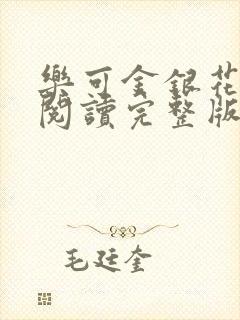 樂可金銀花
閱讀完整版
毛廷奎